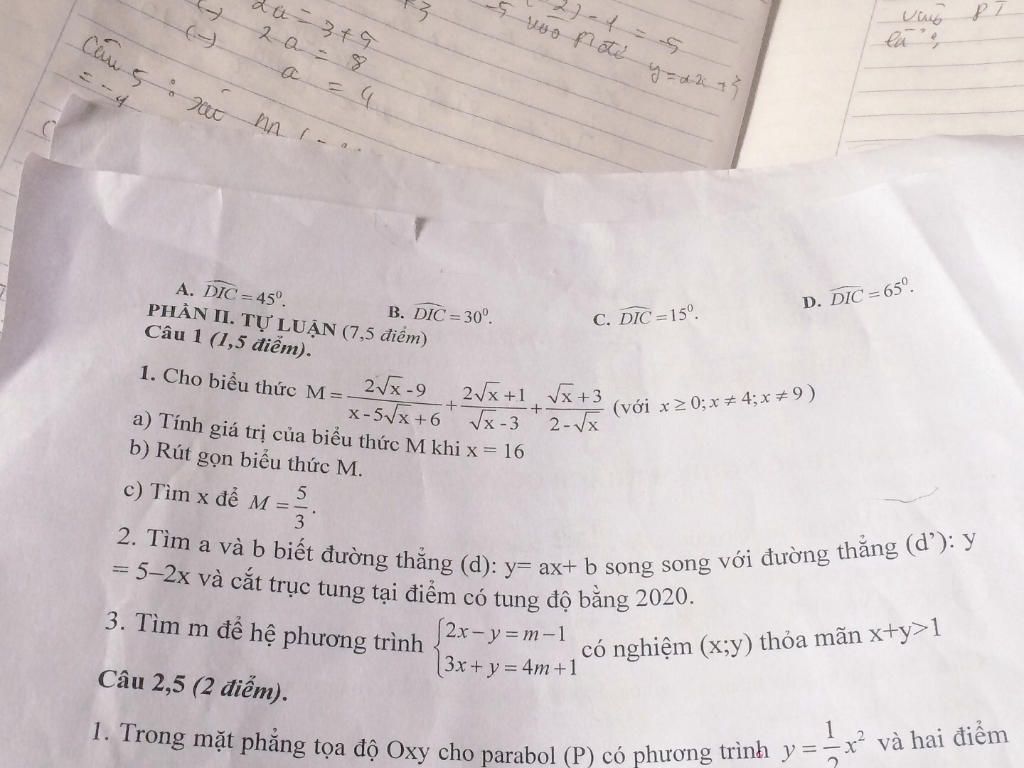 2a = 3+5
2a = 8
a = 4
Câu 5 :
= -4
-1 = -5
-5
y = 2x + 3
A. DIC = 45⁰.
B. DIC = 30⁰.
C. DIC = 15⁰.
D. DIC = 65⁰.
PHẦN II. TỰ LUẬN (7,5 điểm)
Câu 1 (1,5 điểm).
1. Cho biểu thức M = (2√x - 9)/(x - 5√x + 6) + (2√x + 1)/(√x - 3) + (√x + 3)/(2 - √x) (với x ≥ 0; x ≠ 4; x ≠ 9 )
a) Tính giá trị của biểu thức M khi x = 16
b) Rút gọn biểu thức M.
c) Tìm x để M = 5/3.
2. Tìm a và b biết đường thẳng (d): y= ax+ b song song với đường thẳng (d’): y
= 5–2x và cắt trục tung tại điểm có tung độ bằng 2020.
3. Tìm m để hệ phương trình {2x − y = m −1
3x + y = 4m +1 có nghiệm (x;y) thỏa mãn x+y>1
Câu 2,5 (2 điểm).
1. Trong mặt phẳng tọa độ Oxy cho parabol (P) có phương trình y = 1/2 x² và hai điểm